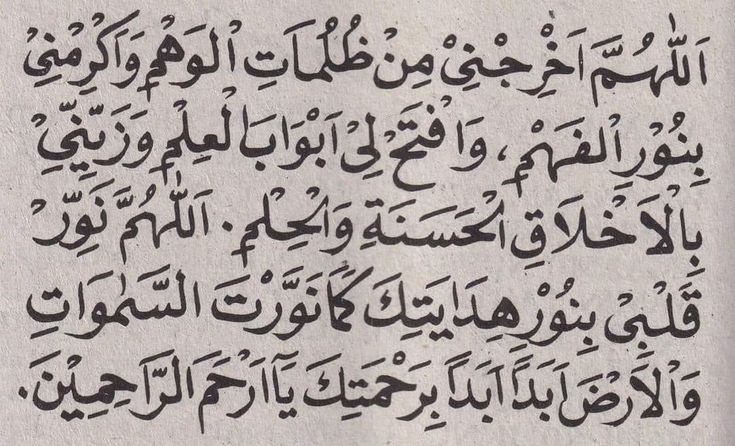 اَللّٰهُمَّ اَخْرِجْنِيْ مِنْ ظُلُمَاتِ الْوَهْمِ وَاَكْرِمْنِيْ
بِنُوْرِ الْفَهْمِ، وَافْتَحْ لِيْ اَبْوَابَ الْعِلْمِ وَزَيِّنِّيْ
بِالْاَخْلَاقِ الْحَسَنَةِ وَالْحِلْمِ. اَللّٰهُمَّ نَوِّرْ
قَلْبِيْ بِنُوْرِ هِدَايَتِكَ كَمَا نَوَّرْتَ السَّمٰوَاتِ
وَالْاَرْضَ اَبَدًا اَبَدًا بِرَحْمَتِكَ يَآاَرْحَمَ الرَّاحِمِيْنَ.